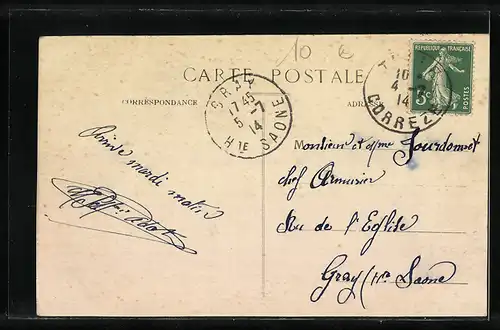 10 €
CARTE POSTALE
CORRESPONDANCE
ADRESSE
RÉPUBLIQUE FRANÇAISE
5c
POSTES
10
4 -7
14
CORREZE
GRAY
17 45
5 -7
14
Hte SAONE
Arrive mardi matin
Monsieur et Mme Jourdonnet
chef Armurier
Rue de l'Eglise
Gray (Hte Saône